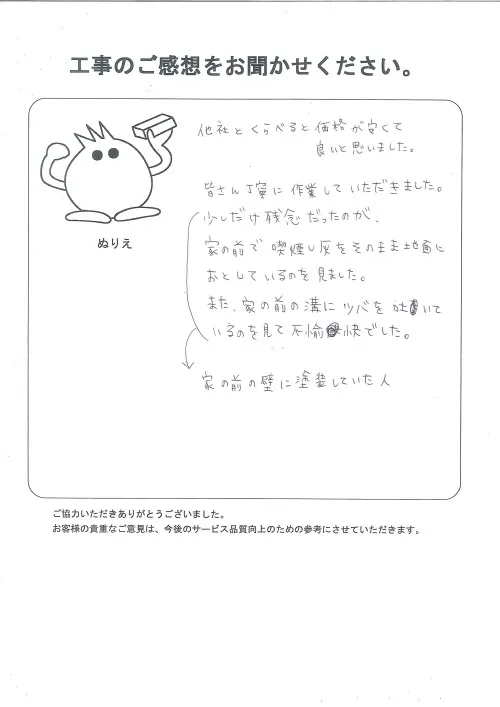 工事のご感想をお聞かせください。
他社とくらべると価格が安くて
良いと思いました。
皆さん丁寧に作業していただきました。
少しだけ残念だったのが、
家の前で喫煙し灰をそのまま地面に
おとしているのを見ました。
また、家の前の溝にツバを吐いて
いるのを見て不愉快でした。
家の前の壁に塗装していた人
ぬりえ
ご協力いただきありがとうございました。
お客様の貴重なご意見は、今後のサービス品質向上のための参考にさせていただきます。